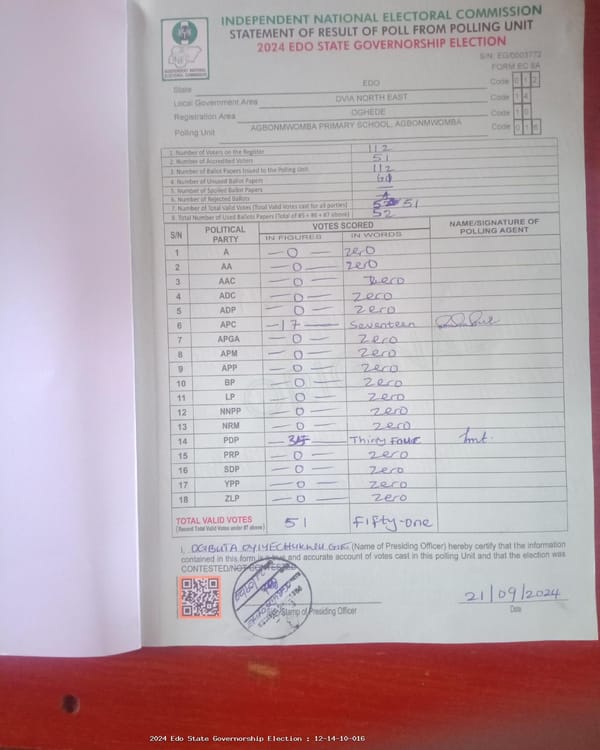 INDEPENDENT NATIONAL ELECTORAL COMMISSION
STATEMENT OF RESULT OF POLL FROM POLLING UNIT
2024 EDO STATE GOVERNORSHIP ELECTION
S/N: EG/0003772
FORM EC 8A
INEC
INDEPENDENT NATIONAL ELECTORAL COMMISSION
State EDO Code 012
Local Government Area OVIA NORTH EAST Code 14
Registration Area OGHEDE Code 10
Polling Unit AGBONMWOMBA PRIMARY SCHOOL, AGBONMWOMBA Code 016
1. Number of Voters on the Register 112
2. Number of Accredited Voters 51
3. Number of Ballot Papers Issued to the Polling Unit 112
4. Number of Unused Ballot Papers
5. Number of Spoiled Ballot Papers
6. Number of Rejected Ballots
7. Number of Total Valid Votes (Total Valid Votes cast for all parties) 51
8. Total Number of Used Ballots Papers (Total of #5 + #6 + #7 above) 52
S/N POLITICAL PARTY VOTES SCORED NAME/SIGNATURE OF POLLING AGENT
IN FIGURES IN WORDS
1 A — 0 — zero
2 AA — 0 — zero
3 AAC — 0 — zero
4 ADC — 0 — zero
5 ADP — 0 — zero
6 APC — 17 — Seventeen
7 APGA — 0 — zero
8 APM — 0 — zero
9 APP — 0 — zero
10 BP — 0 — zero
11 LP — 0 — zero
12 NNPP — 0 — zero
13 NRM — 0 — zero
14 PDP Thirty Four
15 PRP — 0 — zero
16 SDP — 0 — zero
17 YPP — 0 — zero
18 ZLP — 0 — zero
TOTAL VALID VOTES 51 Fifty-one
(Record Total Valid Votes under #7 above)
I, (Name of Presiding Officer) hereby certify that the information
contained in this form is true and accurate account of votes cast in this polling Unit and that the election was
CONTESTED/NOT CONTESTED
Stamp of Presiding Officer
21/09/2024
Date
2024 Edo State Governorship Election : 12-14-10-016